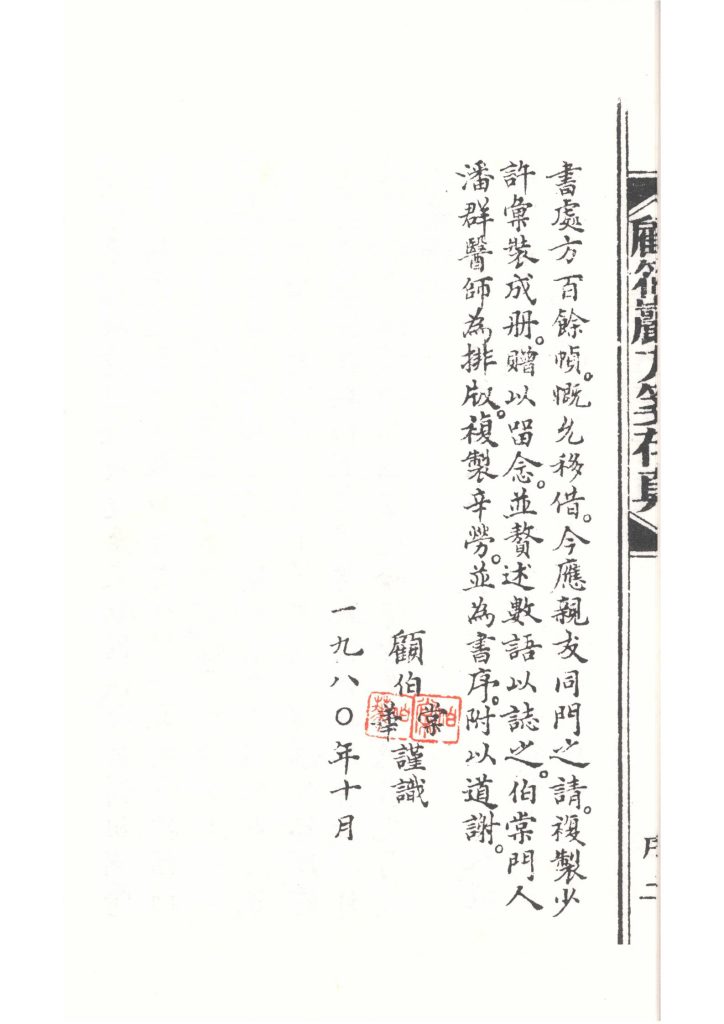 書處方百餘幀。慨允移借。今應親友同門之請。複製少
許彙裝成册。贈以留念。並贅述數語以誌之。伯棠門人
潘群醫師為排版。複製辛勞。並為書序。附以道謝。
顧伯
棠
華
謹識
一九八〇年十月
序二